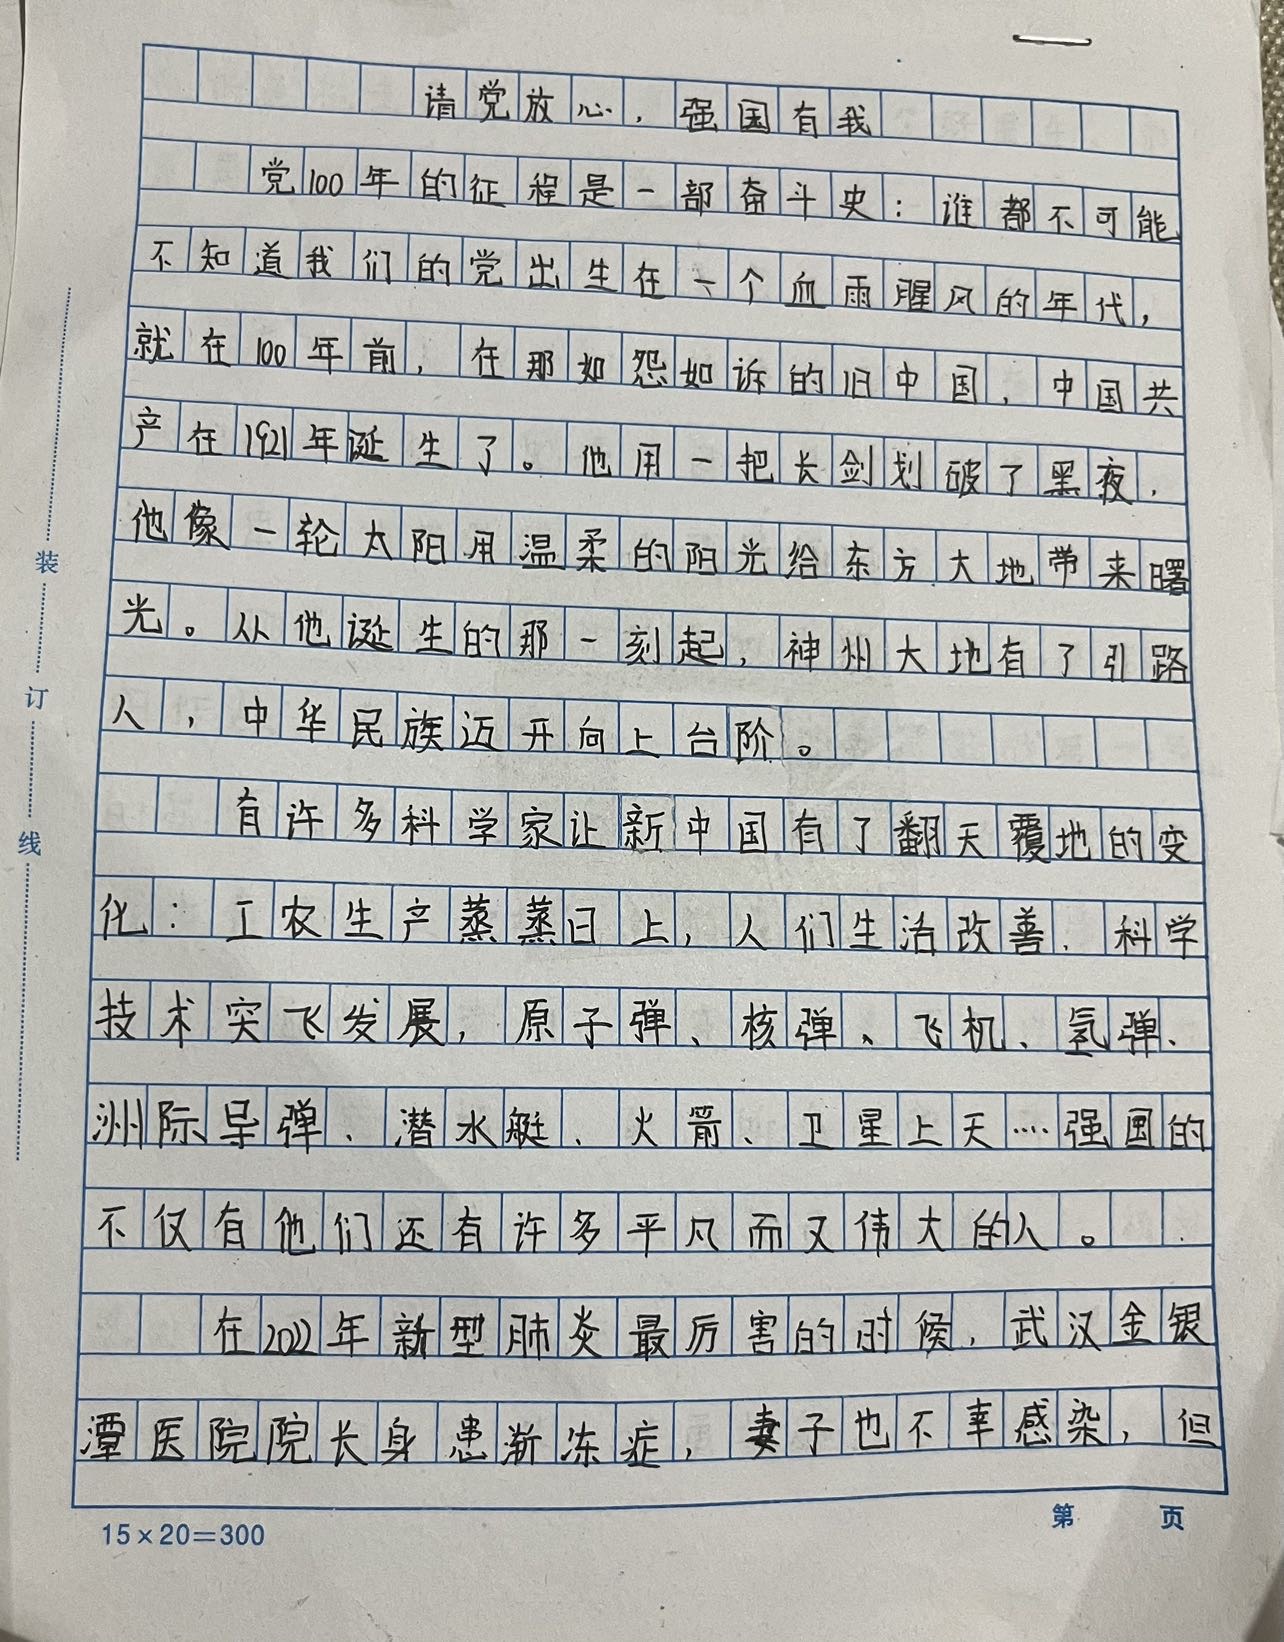 请党放心，强国有我
党100年的征程是一部奋斗史：谁都不可能
不知道我们的党出生在一个血雨腥风的年代，
就在100年前，在那如怨如诉的旧中国，中国共
产在1921年诞生了。他用一把长剑划破了黑夜，
他像一轮太阳用温柔的阳光给东方大地带来曙
光。从他诞生的那一刻起，神州大地有了引路
人，中华民族迈开向上台阶。
有许多科学家让新中国有了翻天覆地的变
化：工农生产蒸蒸日上，人们生活改善，科学
技术突飞发展，原子弹、核弹、飞机、氢弹、
洲际导弹、潜水艇、火箭、卫星上天……强国的
不仅有他们还有许多平凡而又伟大的人。
在2022年新型肺炎最厉害的时候，武汉金银
潭医院院长身患渐冻症，妻子也不幸感染，但
装
订
线
15×20=300
第 页